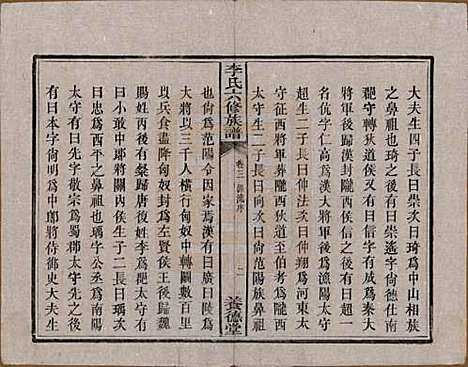 大夫生四子長曰崇次曰璣為中山相族
之鼻祖也璣之後有曰崇遙字尚德仕南
郡守轉狄道侯又後有曰信字有成為秦大
將軍後歸漢封隴西侯信之後有曰超一
名伉字仁高為漢大將軍後為漁陽太守
超生二子長曰伸法次曰伸翔為河東太
守征西將軍葬隴西狄道至伯考為隴西
太守生二子長曰尚次曰尚范陽族鼻祖
李氏六修族譜
卷三 源流序
一
養德堂
也尚為范陽令因家焉漢有曰廣曰陵為
大將以三千人橫行匈奴中轉鬭數百里
以兵食盡降匈奴封為左賢侯王
賜姓丙後有粲歸唐後姓李為范太守有
曰小敢中郎將關內侯生子二長曰瑀次
曰忠為西平之鼻祖也瑀字公丞為南陽
太守有曰先字敬宗為蜀郡太守先之後
有曰本字尚明為中郎將侍御史大夫生